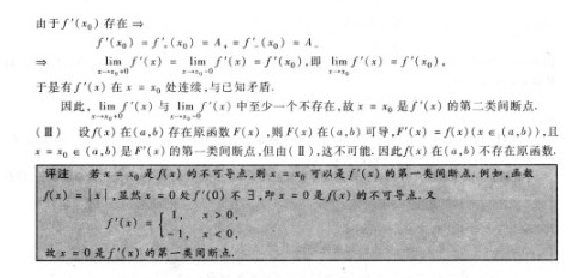 由于 f′(x₀) 存在 ⇒
f′(x₀) = f′₊(x₀) = A₊ = f′₋(x₀) = A₋
⇒ lim_{x→x₀+0} f′(x) = lim_{x→x₀-0} f′(x) = f′(x₀), 即 lim_{x→x₀} f′(x) = f′(x₀),
于是有 f′(x) 在 x = x₀ 处连续,与已知矛盾.
因此, lim_{x→x₀+0} f′(x) 与 lim_{x→x₀-0} f′(x) 中至少一个不存在,故 x = x₀ 是 f′(x) 的第二类间断点.
(Ⅲ) 设 f(x) 在 (a,b) 存在原函数 F(x), 则 F(x) 在 (a,b) 可导, F′(x) = f(x)(x ∈ (a,b)), 且
x = x₀ ∈ (a,b) 是 F′(x) 的第一类间断点,但由(Ⅱ),这不可能. 因此 f(x) 在 (a,b) 不存在原函数.
评注 若 x = x₀ 是 f(x) 的不可导点,则 x = x₀ 可以是 f′(x) 的第一类间断点.例如,函数
f(x) = |x|, 显然 x = 0 处 f′(0) 不 ∃, 即 x = 0 是 f(x) 的不可导点.又
f′(x) = { 1, x > 0,
-1, x < 0,
故 x = 0 是 f′(x) 的第一类间断点.